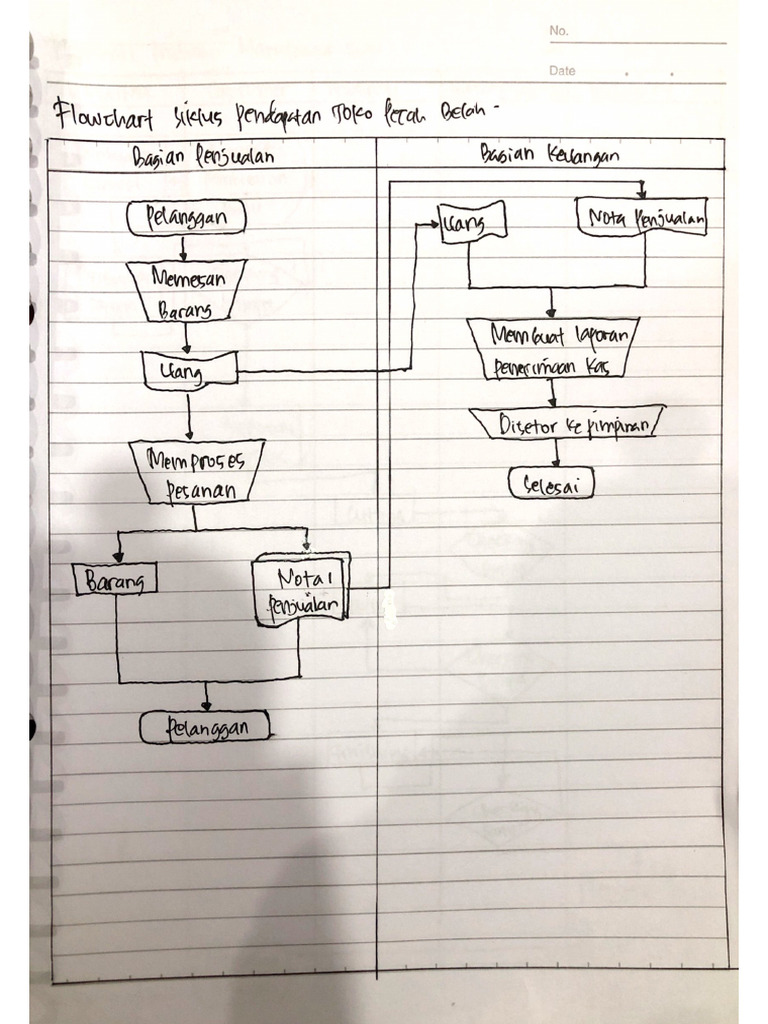 No.
Date
Flowchart siklus pendapatan Toko Pecah Belah -
Bagian Penjualan
Bagian Keuangan
Pelanggan
Memesan
Barang
Uang
Memproses
pesanan
Barang
Nota 1
penjualan
Pelanggan
Uang
Nota Penjualan
Membuat laporan
penerimaan kas
Disetor ke pimpinan
Selesai